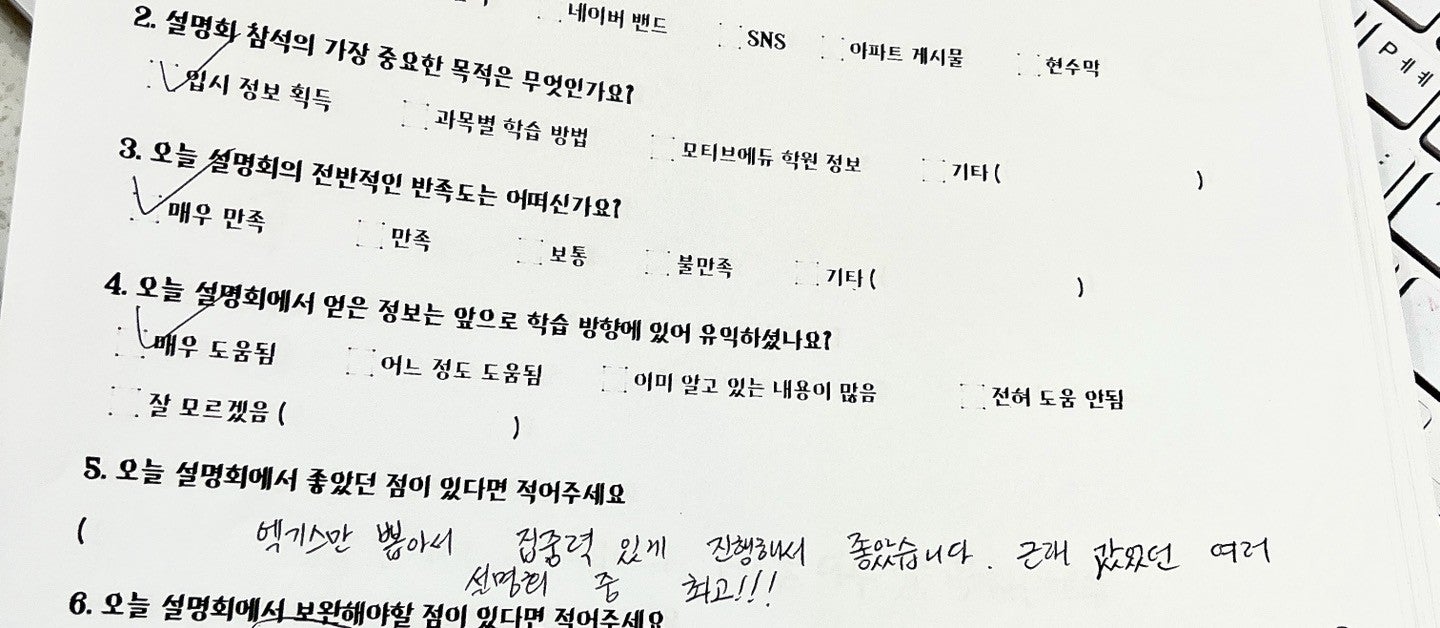 네이버 밴드 SNS 아파트 게시물 현수막
2. 설명회 참석의 가장 중요한 목적은 무엇인가요?
입시 정보 획득 과목별 학습 방법 모티브에듀 학원 정보 기타 ( )
3. 오늘 설명회의 전반적인 만족도는 어떠신가요?
매우 만족 만족 보통 불만족 기타 ( )
4. 오늘 설명회에서 얻은 정보는 앞으로 학습 방향에 있어 유익하셨나요?
매우 도움됨 어느 정도 도움됨 이미 알고 있는 내용이 많음 전혀 도움 안됨
잘 모르겠음 ( )
5. 오늘 설명회에서 좋았던 점이 있다면 적어주세요
( 엑기스만 뽑아서 집중력 있게 진행해서 좋았습니다. 근래 갔었던 여러
설명회 중 최고!!!
6. 오늘 설명회에서 보완해야할 점이 있다면 적어주세요